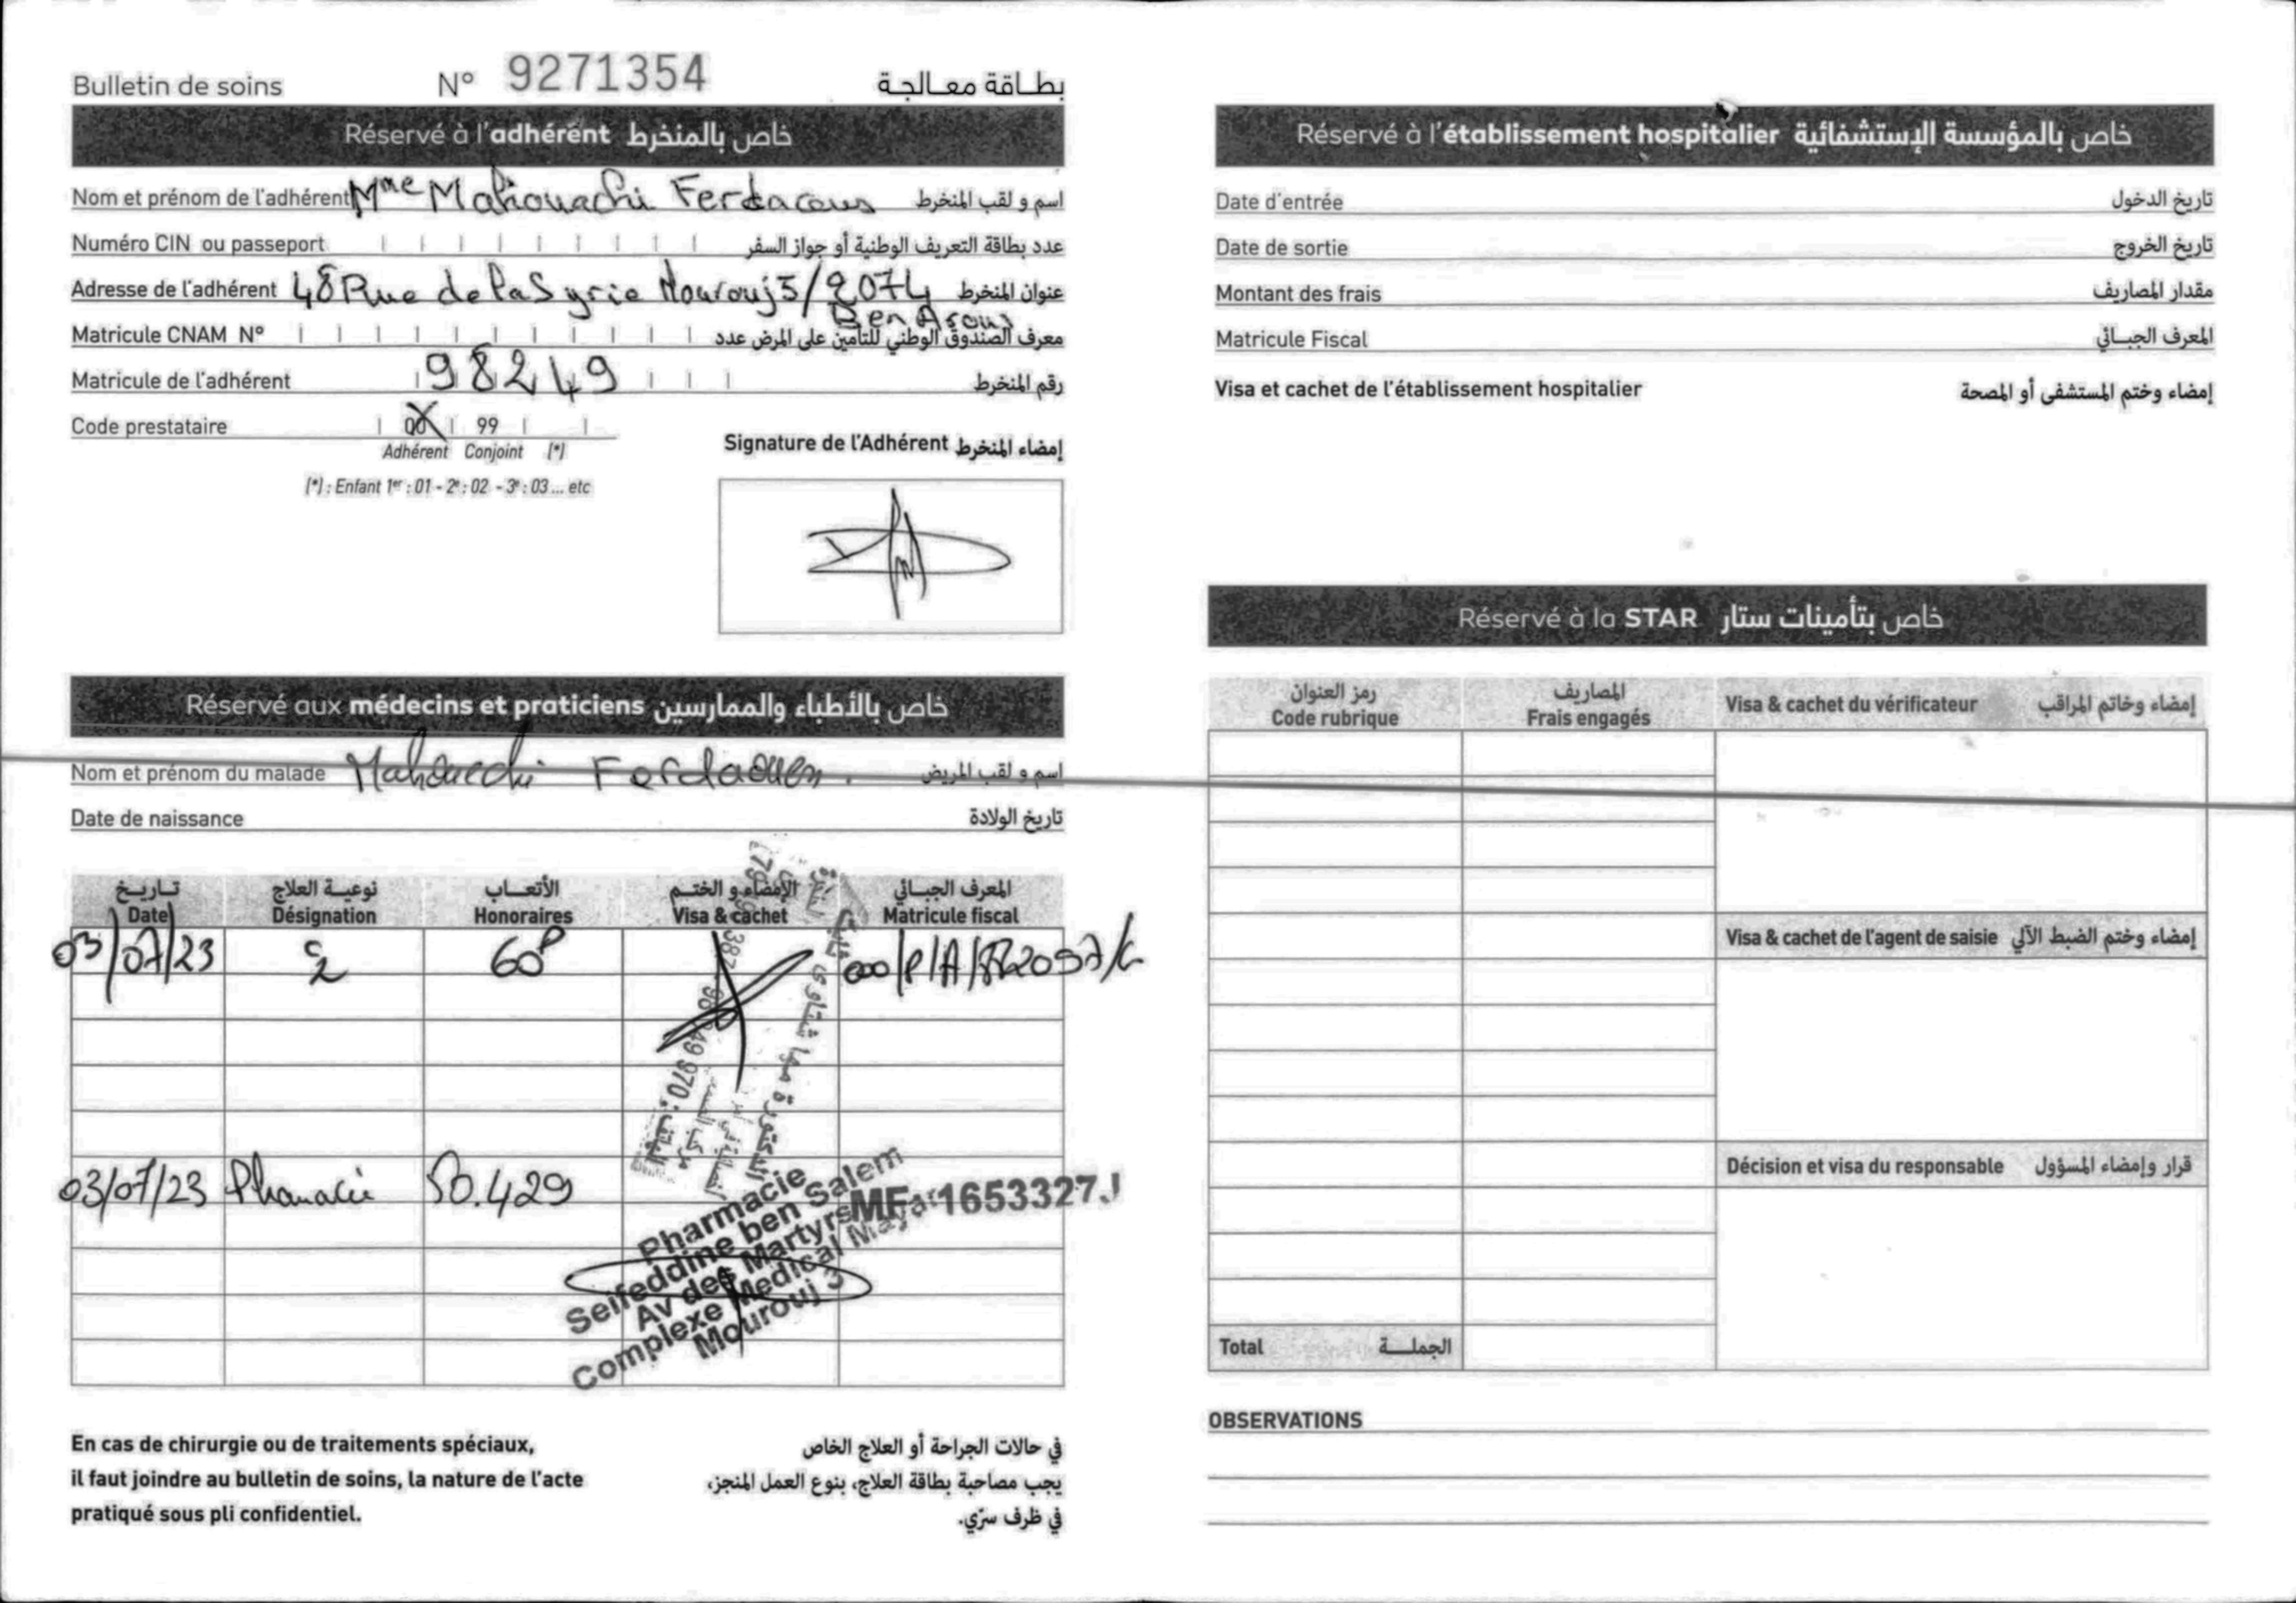 Bulletin de soins N° 9271354 بطاقة معالجة
Réservé à l'adhérent خاص بالمنخرط
Nom et prénom de l'adhérent Mme Mahouachi Ferdaous اسم و لقب المنخرط
Numéro CIN ou passeport عدد بطاقة التعريف الوطنية أو جواز السفر
Adresse de l'adhérent 48 Rue de la Syrie Mourouj 5/2074 عنوان المنخرط
Ben Arous
Matricule CNAM N° معرف الصندوق الوطني للتأمين على المرض عدد
Matricule de l'adhérent 98249 رقم المنخرط
Code prestataire 00 99
Adhérent Conjoint (*)
(*) : Enfant 1er : 01 - 2e : 02 - 3e : 03 ... etc
Signature de l'Adhérent إمضاء المنخرط
Réservé aux médecins et praticiens خاص بالأطباء والممارسين
Nom et prénom du malade Mahouachi Ferdaous اسم و لقب المريض
Date de naissance تاريخ الولادة
تاريخ نوعية العلاج الأتعاب الإمضاء و الختم المعرف الجبائي
Date Désignation Honoraires Visa & cachet Matricule fiscal
03/07/23 C2 60
03/07/23 Pharmacie 50.429 MF 1653327J
Pharmacie
Seifeddine ben Salem
Av des Martyrs
Complexe Medical Mayar
Mourouj 3
En cas de chirurgie ou de traitements spéciaux,
il faut joindre au bulletin de soins, la nature de l'acte
pratiqué sous pli confidentiel.
في حالات الجراحة أو العلاج الخاص
يجب مصاحبة بطاقة العلاج، بنوع العمل المنجز،
في ظرف سرّي.
Réservé à l'établissement hospitalier خاص بالمؤسسة الإستشفائية
Date d'entrée تاريخ الدخول
Date de sortie تاريخ الخروج
Montant des frais مقدار المصاريف
Matricule Fiscal المعرف الجبائي
Visa et cachet de l'établissement hospitalier إمضاء وختم المستشفى أو المصحة
Réservé à la STAR خاص بتأمينات ستار
رمز العنوان المصاريف
Code rubrique Frais engagés Visa & cachet du vérificateur إمضاء وخاتم المراقب
Visa & cachet de l'agent de saisie إمضاء وختم الضبط الآلي
Décision et visa du responsable قرار وإمضاء المسؤول
Total الجملة
OBSERVATIONS